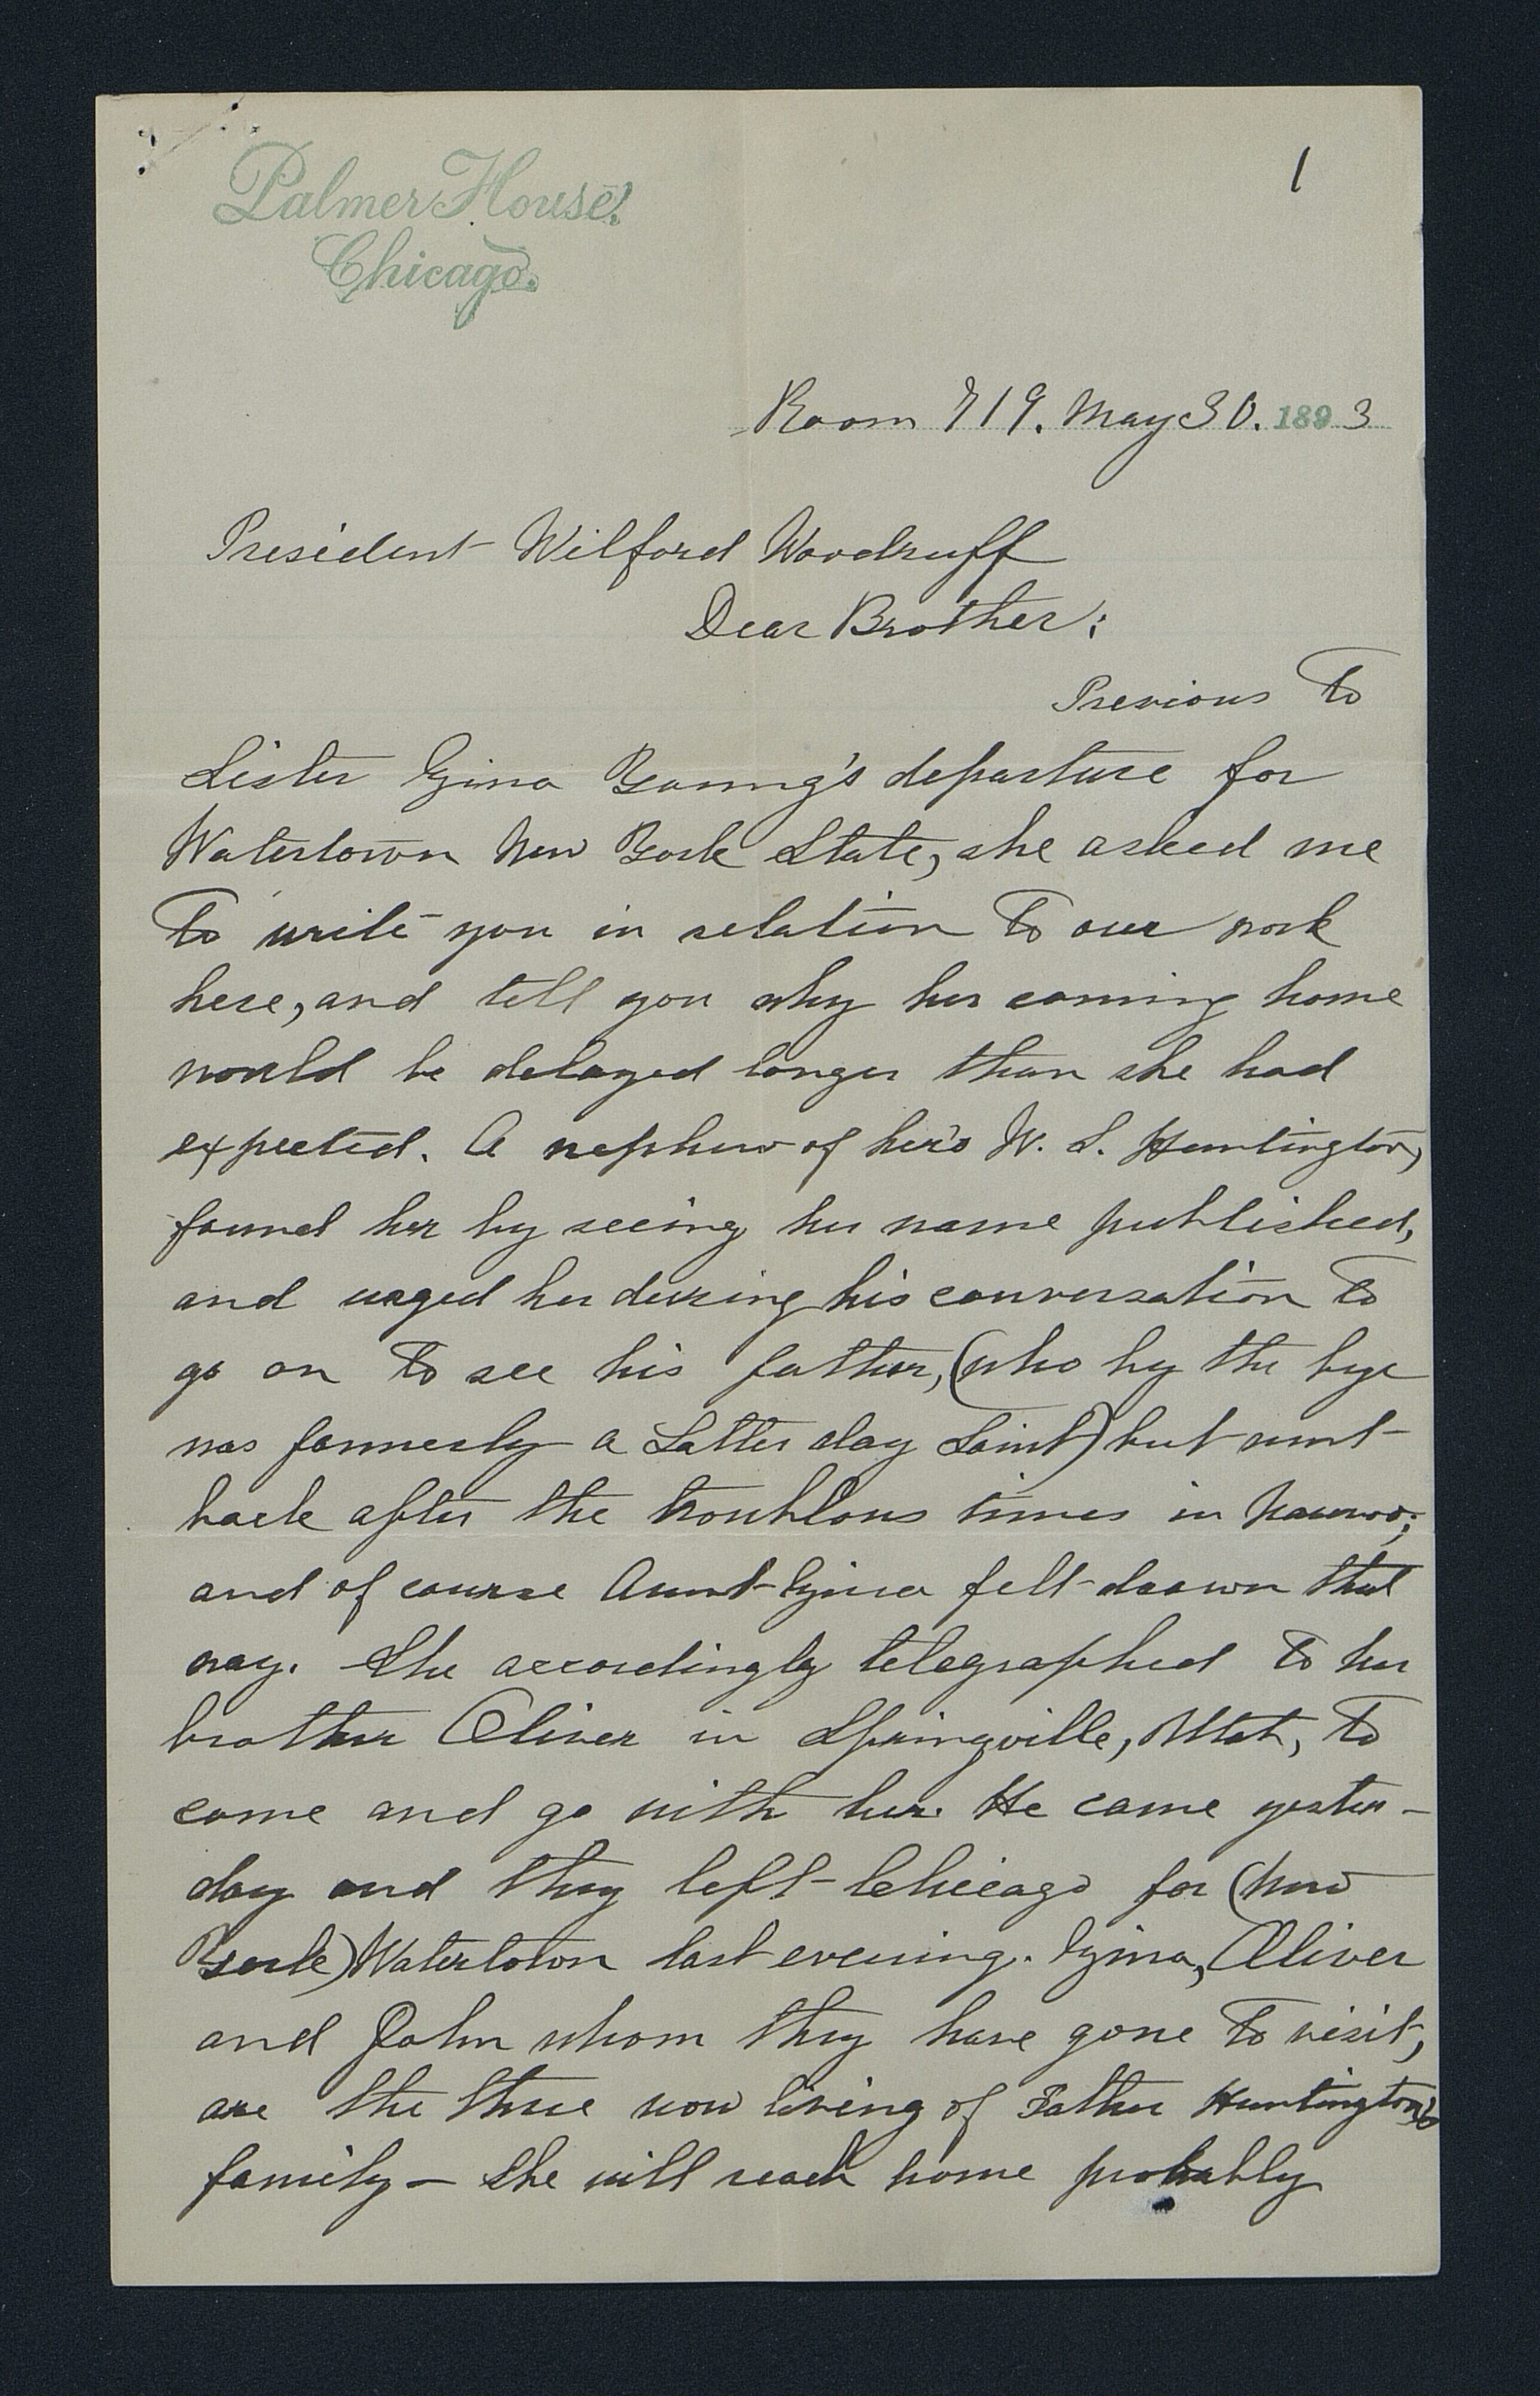 Palmer House,
Chicago.
1
Room 719. May 30. 1893
President Wilford Woodruff
Dear Brother;
Previous To
Sister Zina Young's departure for
Watertown New York State, she asked me
To write you in relation To our work
here, and tell you why her coming home
would be delayed longer than she had
expected. A nephew of her's W. S. Huntington,
found her by seeing her name published,
and urged her during his conversation To
go on To see his father, (who by the bye
was formerly a Latter day Saint) but went
back after the troublous times in Nauvoo;
and of course Aunt Zina felt drawn that
way. She accordingly telegraphed To her
brother Oliver in Springville, Utah, To
come and go with her. He came yester-
day and they left Chicago for (New
York) Watertown last evening. Zina, Oliver
and John whom they have gone To visit,
are the three now living of Father Huntington's
family – She will reach home probably